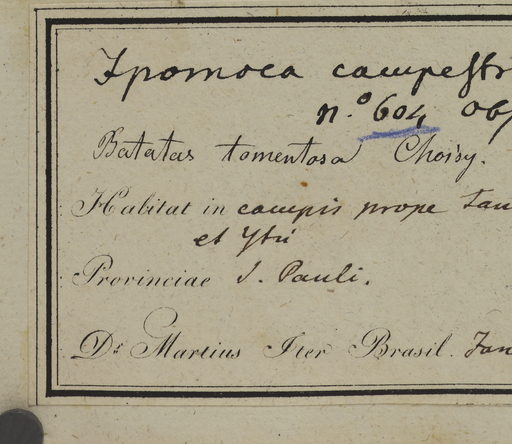 Ipomoea campestr
n.º 604 Obs
Batatas tomentosa Choisy.
Habitat in campis prope Tau
et Ytú
Provinciae S. Pauli.
Dr Martius Iter Brasil. Jan